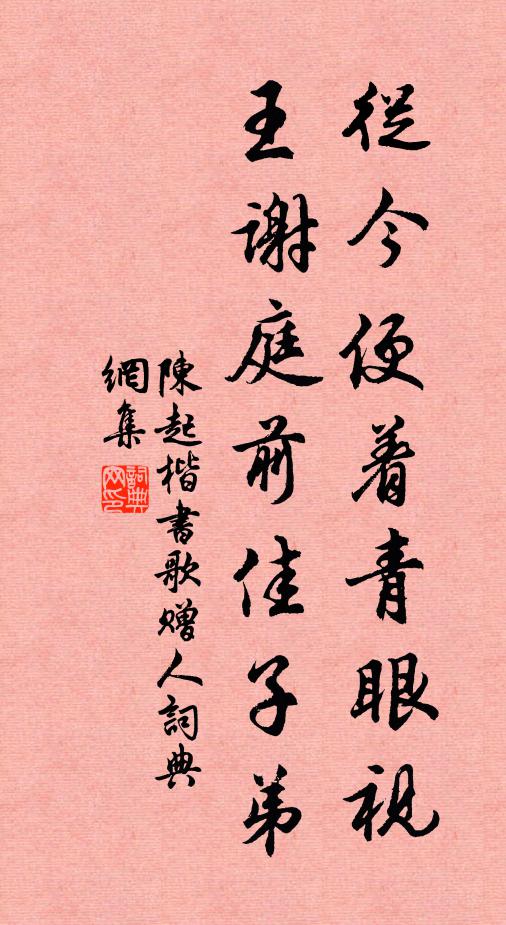 從今便着青眼視
王謝庭前佳子弟
陳起楷書歌贈人詞典
網集
詞典
网印